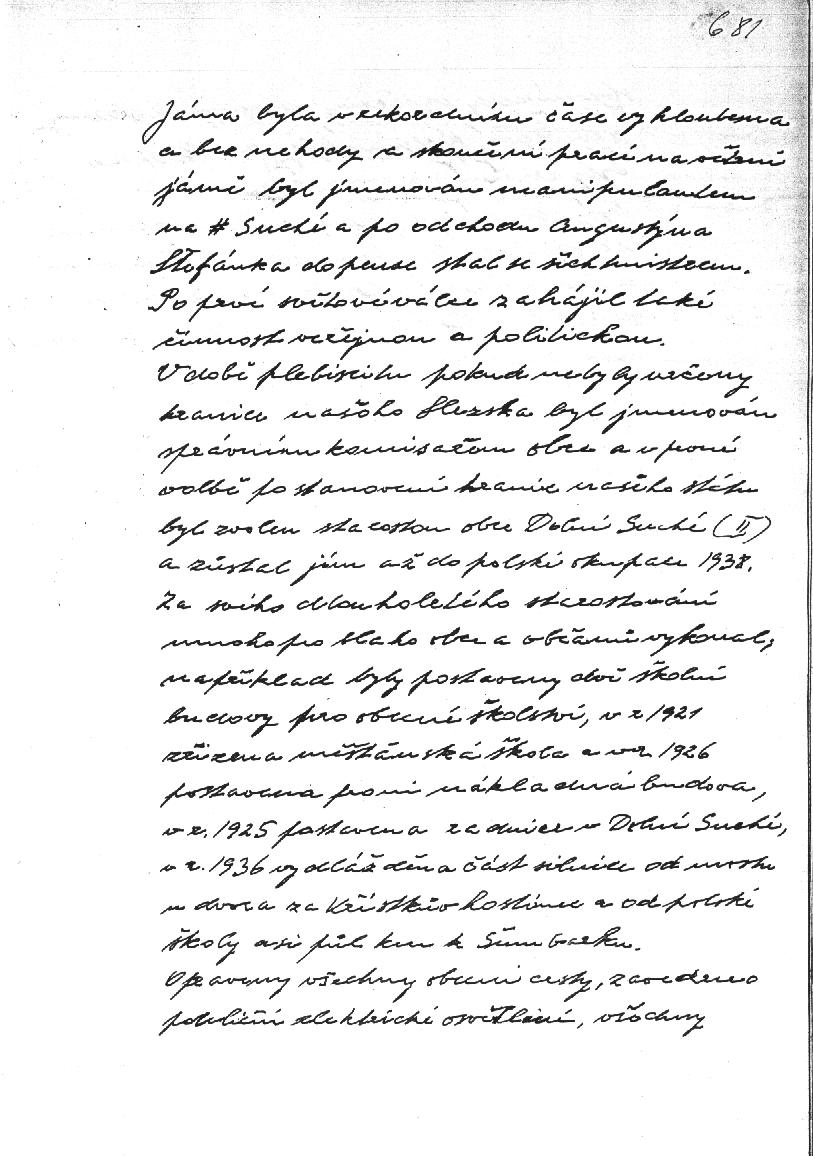 681
Jáma byla v rekordním čase vyhloubena
a bez nehody a skončení prací na
jámě byl jmenován manipulantem
na # Suché a po odchodu Augustýna
Štefánka do pense stal se šichtmistrem.
Po prvé světové válce zahájil také
činnost veřejnou a politickou.
V době plebiscitu pokud nebyly určeny
hranice našeho Slezska byl jmenován
správním komisařem obce a v prvé
volbě po stanovení hranic našeho státu
byl zvolen starostou obce Dolní Suché (II)
a zůstal jím až do polské okupace 1938.
Za svého dlouholetého starostování
mnoho pro blaho obce a občanů vykonal,
například byly postaveny dvě školní
budovy pro obecné školství, v r 1921
zřízena měšťanská škola a v r. 1926
postavena první nákladná budova,
v r. 1925 postavena radnice v Dolní Suché,
v r. 1936 vydlážděna část silnice od mostu
u dvora za Křístkův hostinec a od polské
školy asi půl km k Šumbarku.
Opraveny všechny obecní cesty, zavedeno
pouliční elektrické osvětlení, všechny